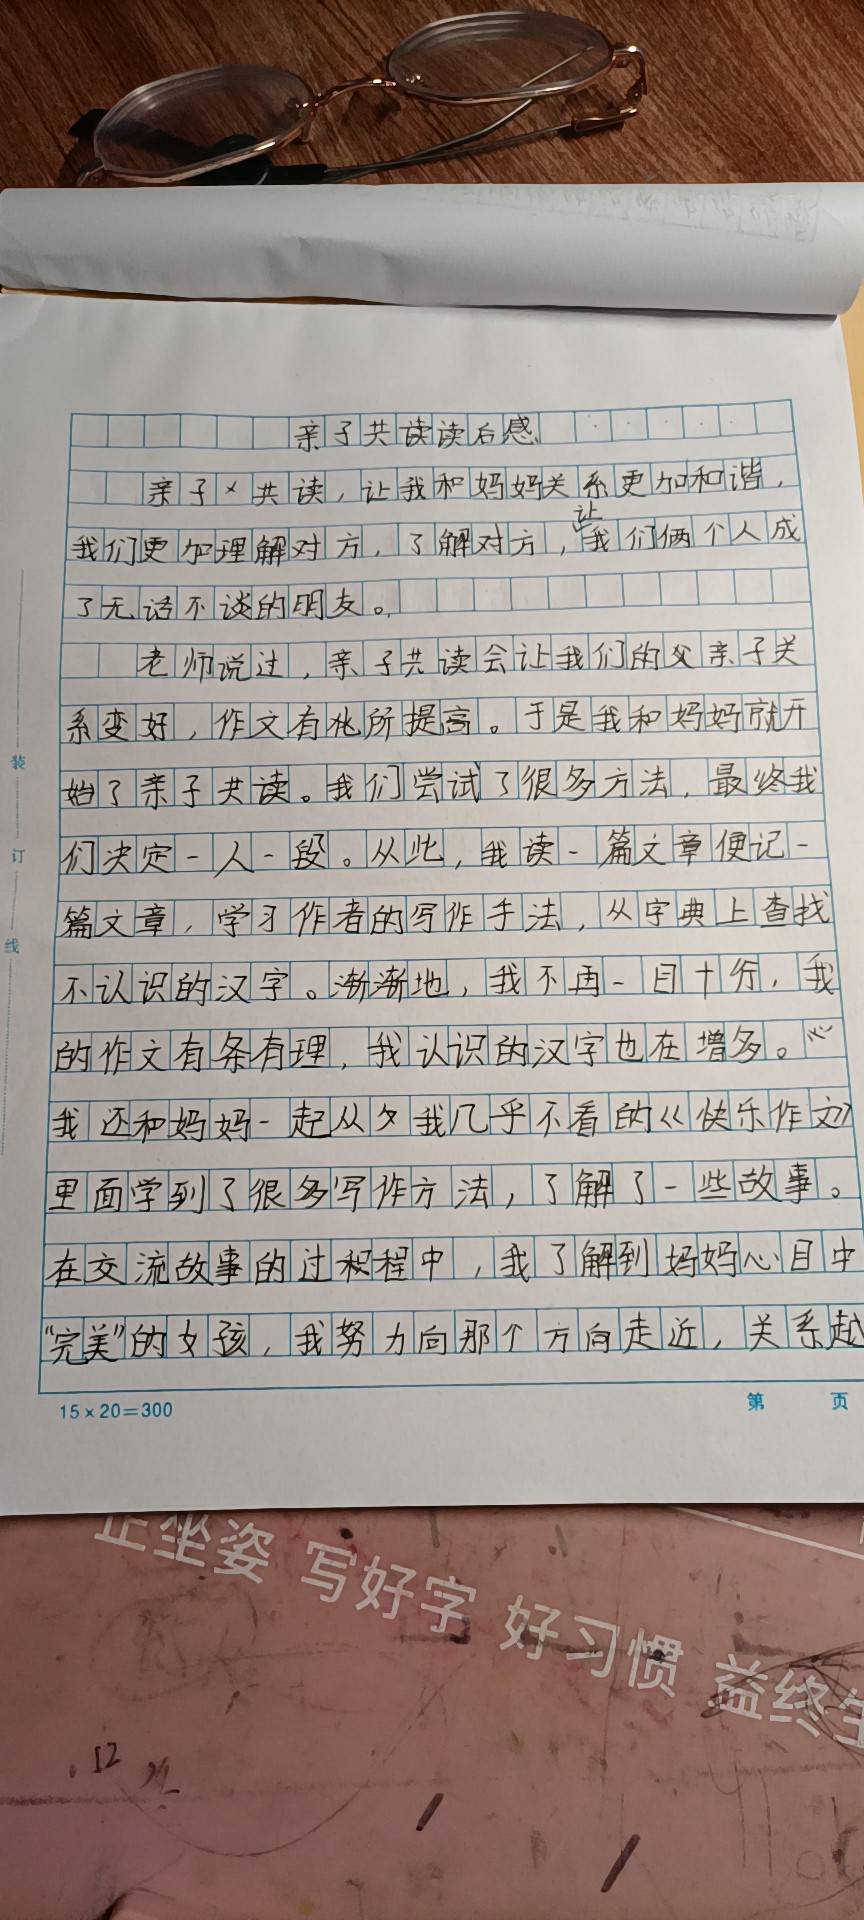 亲子共读读后感
亲子共读，让我和妈妈关系更加和谐，
我们更加理解对方，了解对方，让我们俩个人成
了无话不谈的朋友。
老师说过，亲子共读会让我们的父亲子关
系变好，作文有所提高。于是我和妈妈就开
始了亲子共读。我们尝试了很多方法，最终我
们决定一人一段。从此，我读一篇文章便记一
篇文章，学习作者的写作手法，从字典上查找
不认识的汉字。渐渐地，我不再一目十行，我
的作文有条有理，我认识的汉字也在增多。
我还和妈妈一起从我几乎不看的《快乐作文》
里面学到了很多写作方法，了解了一些故事。
在交流故事的过程中，我了解到妈妈心目中
“完美”的女孩，我努力向那个方向走近，关系越
装
订
线
15×20=300
第 页
正坐姿 写好字 好习惯 益终生
12